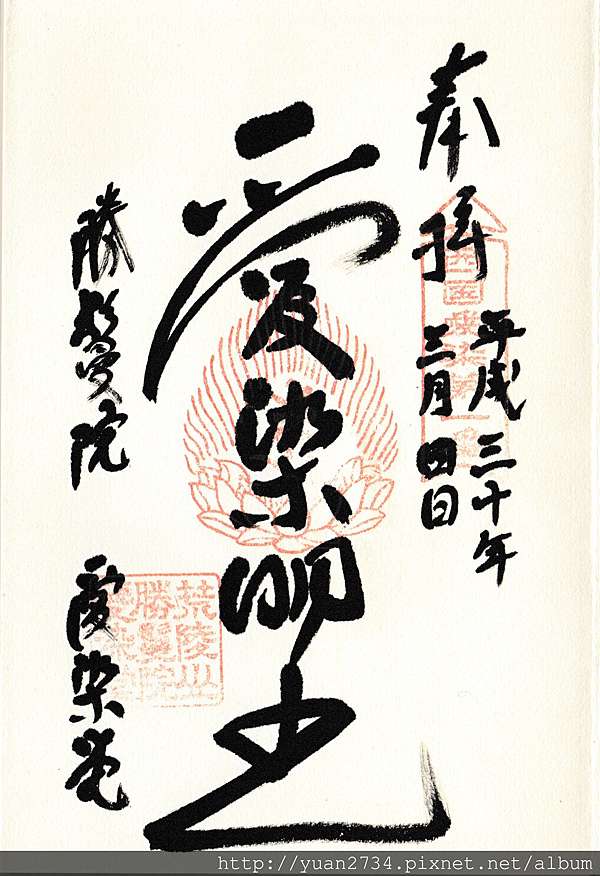 奉拝
平成三十年
三月四日
愛染明王
勝鬘院
愛染堂
荒陵山
勝鬘院
愛染堂
http://yuan2734.pixnet.net/album